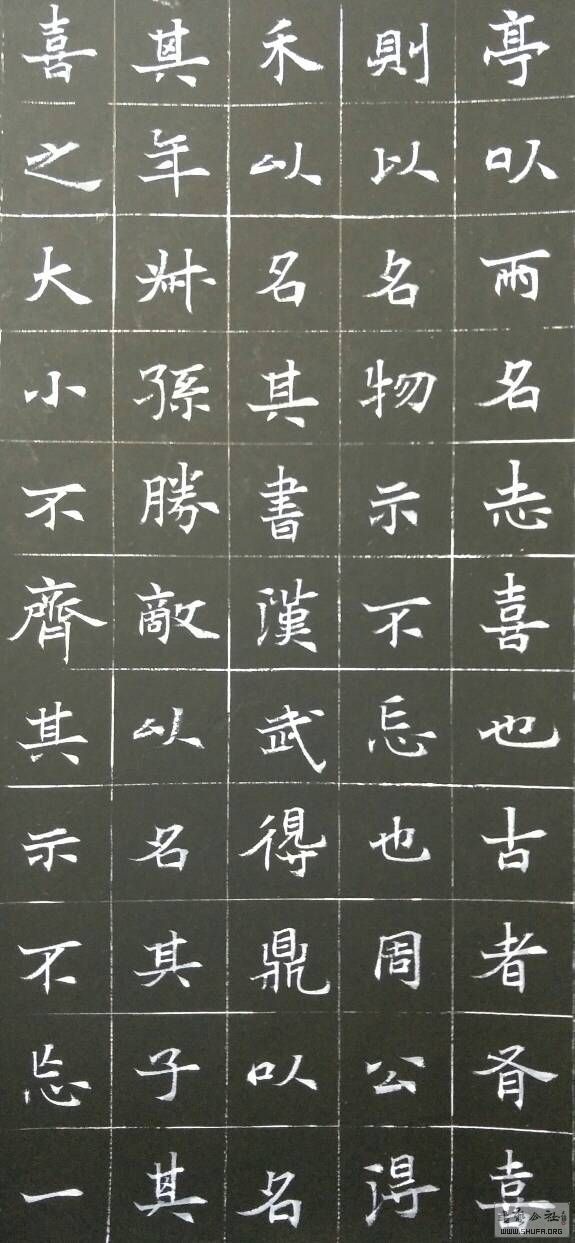 亭以雨名志喜也古者有喜
則以名物示不忘也周公得
禾以名其書漢武得鼎以名
其年叔孫勝敵以名其子其
喜之大小不齊其示不忘一
WWW.SHUFA.ORG